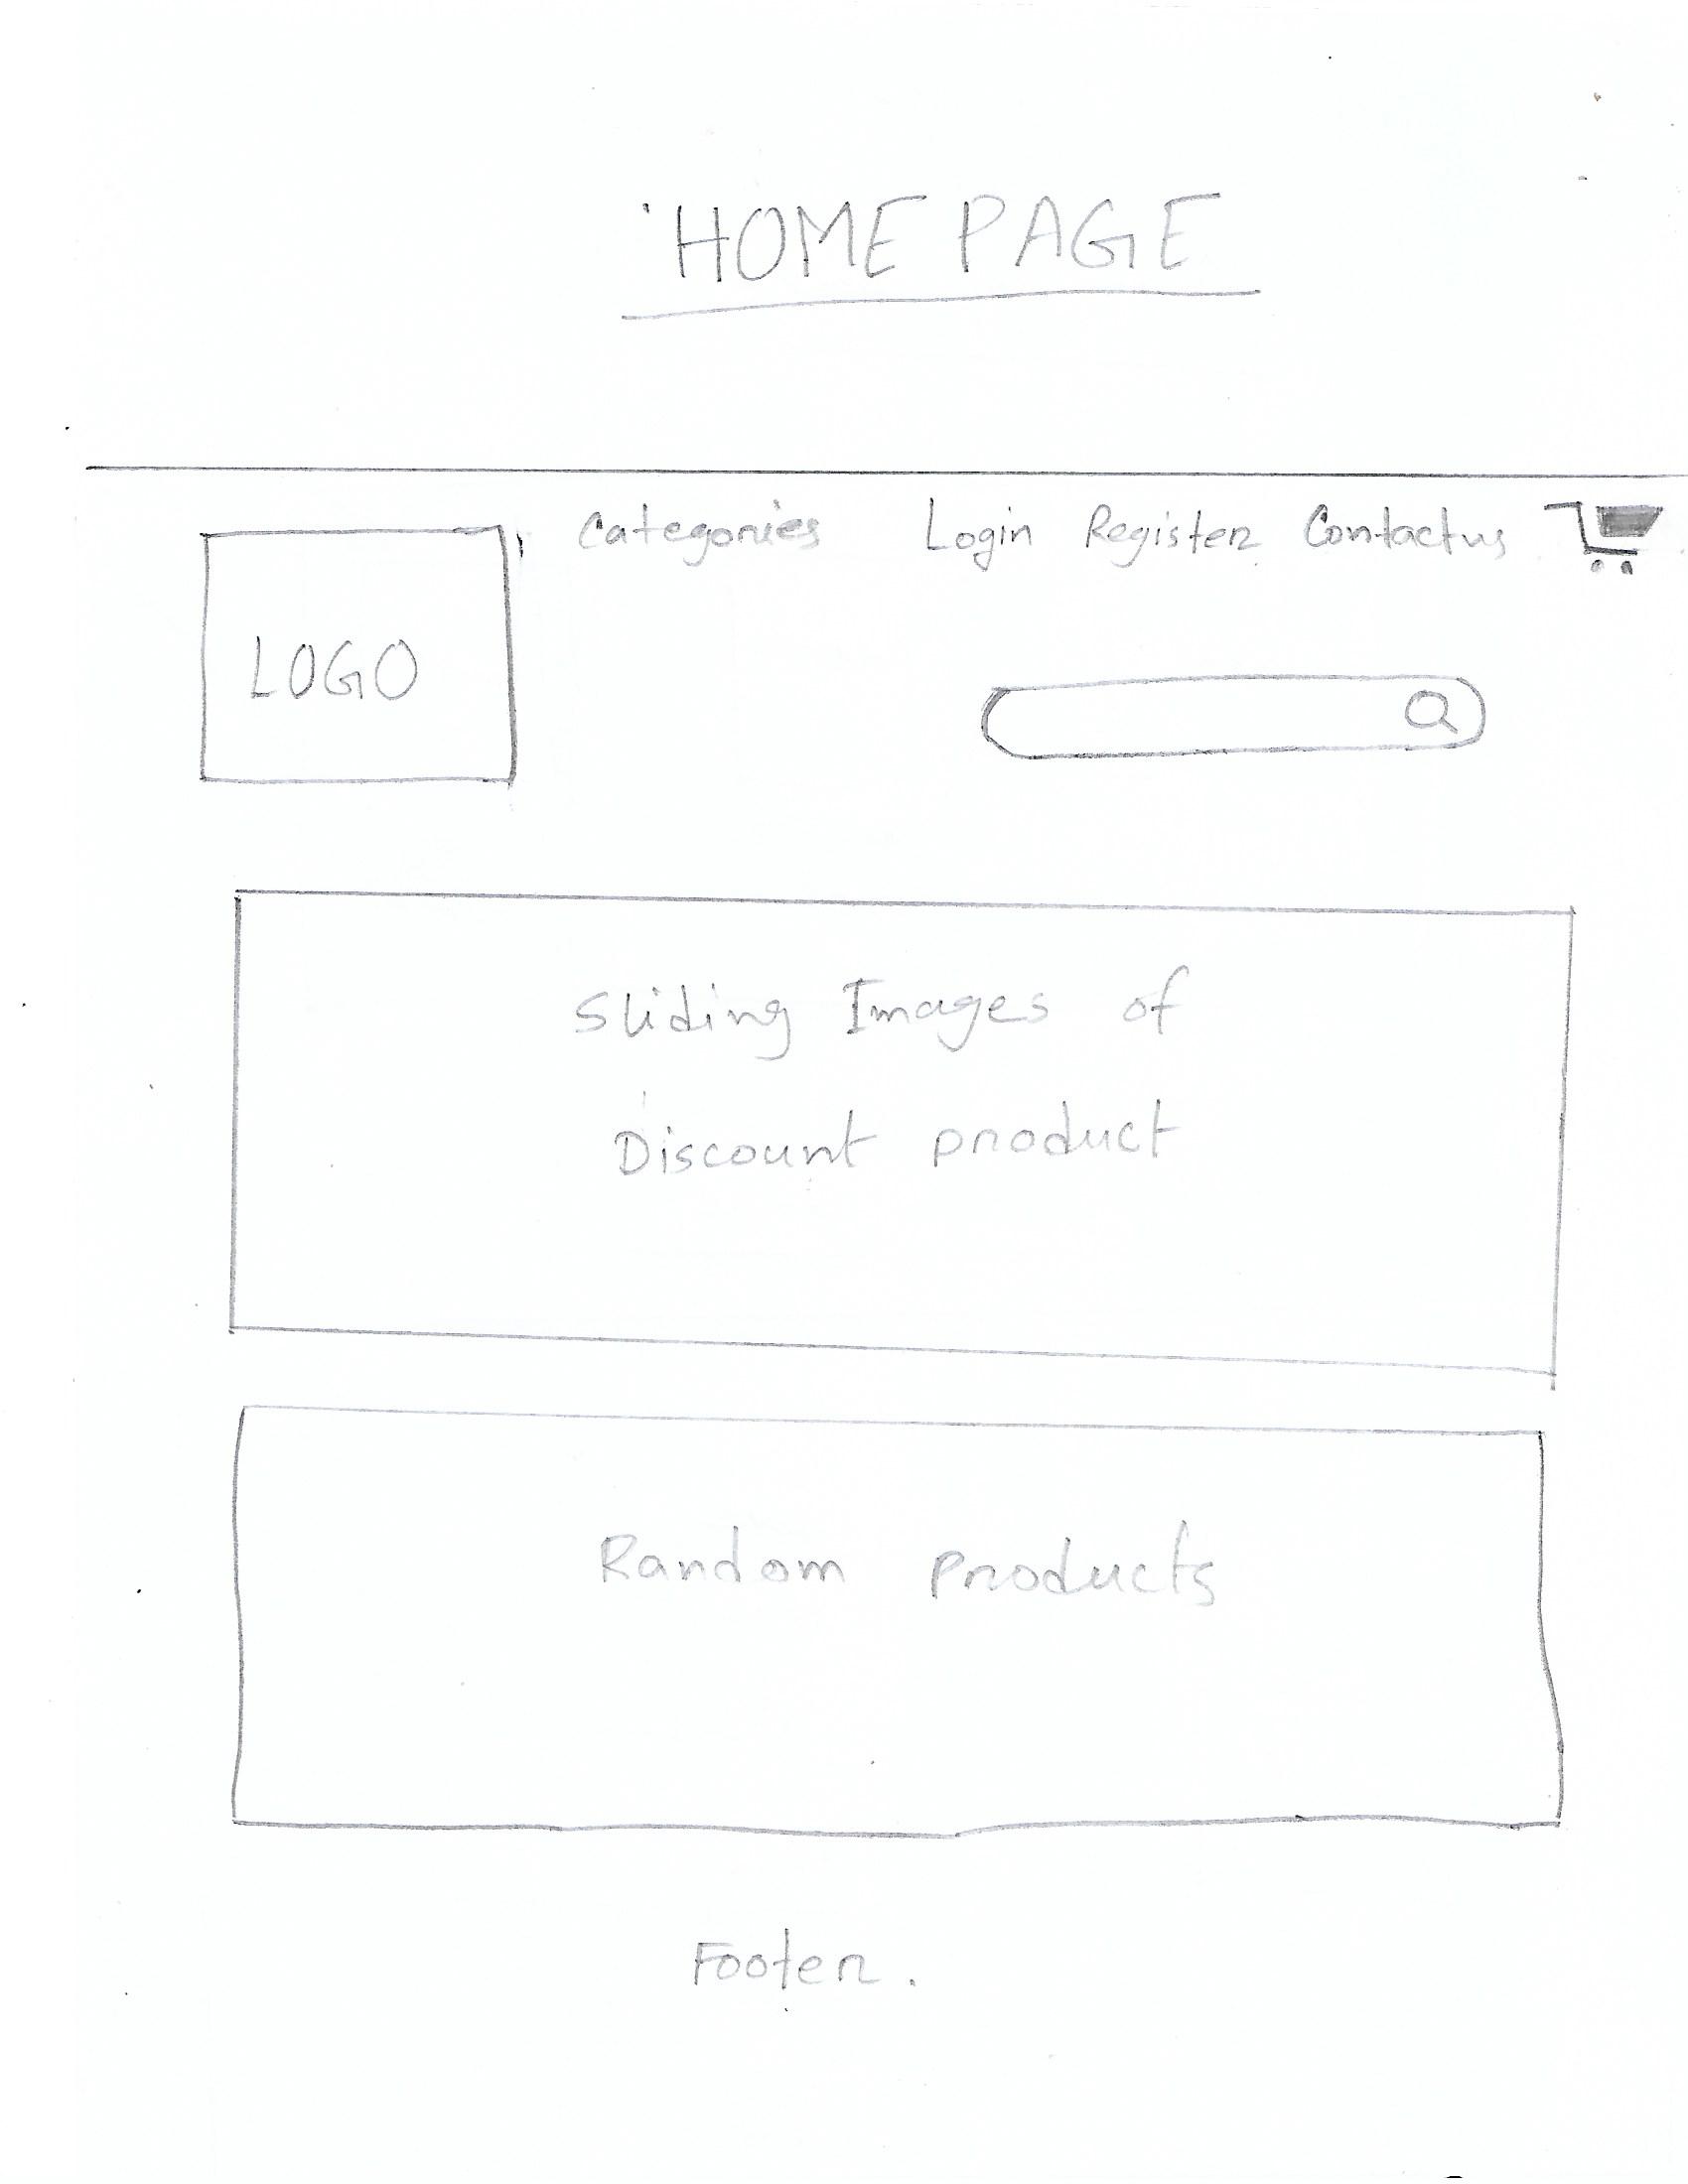 HOME PAGE
Categories Login Register Contactus
LOGO
Sliding Images of
Discount product
Random products
Footer.